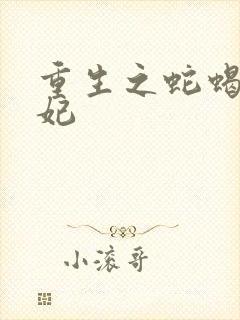 重生之蛇蝎
妃
小滚哥